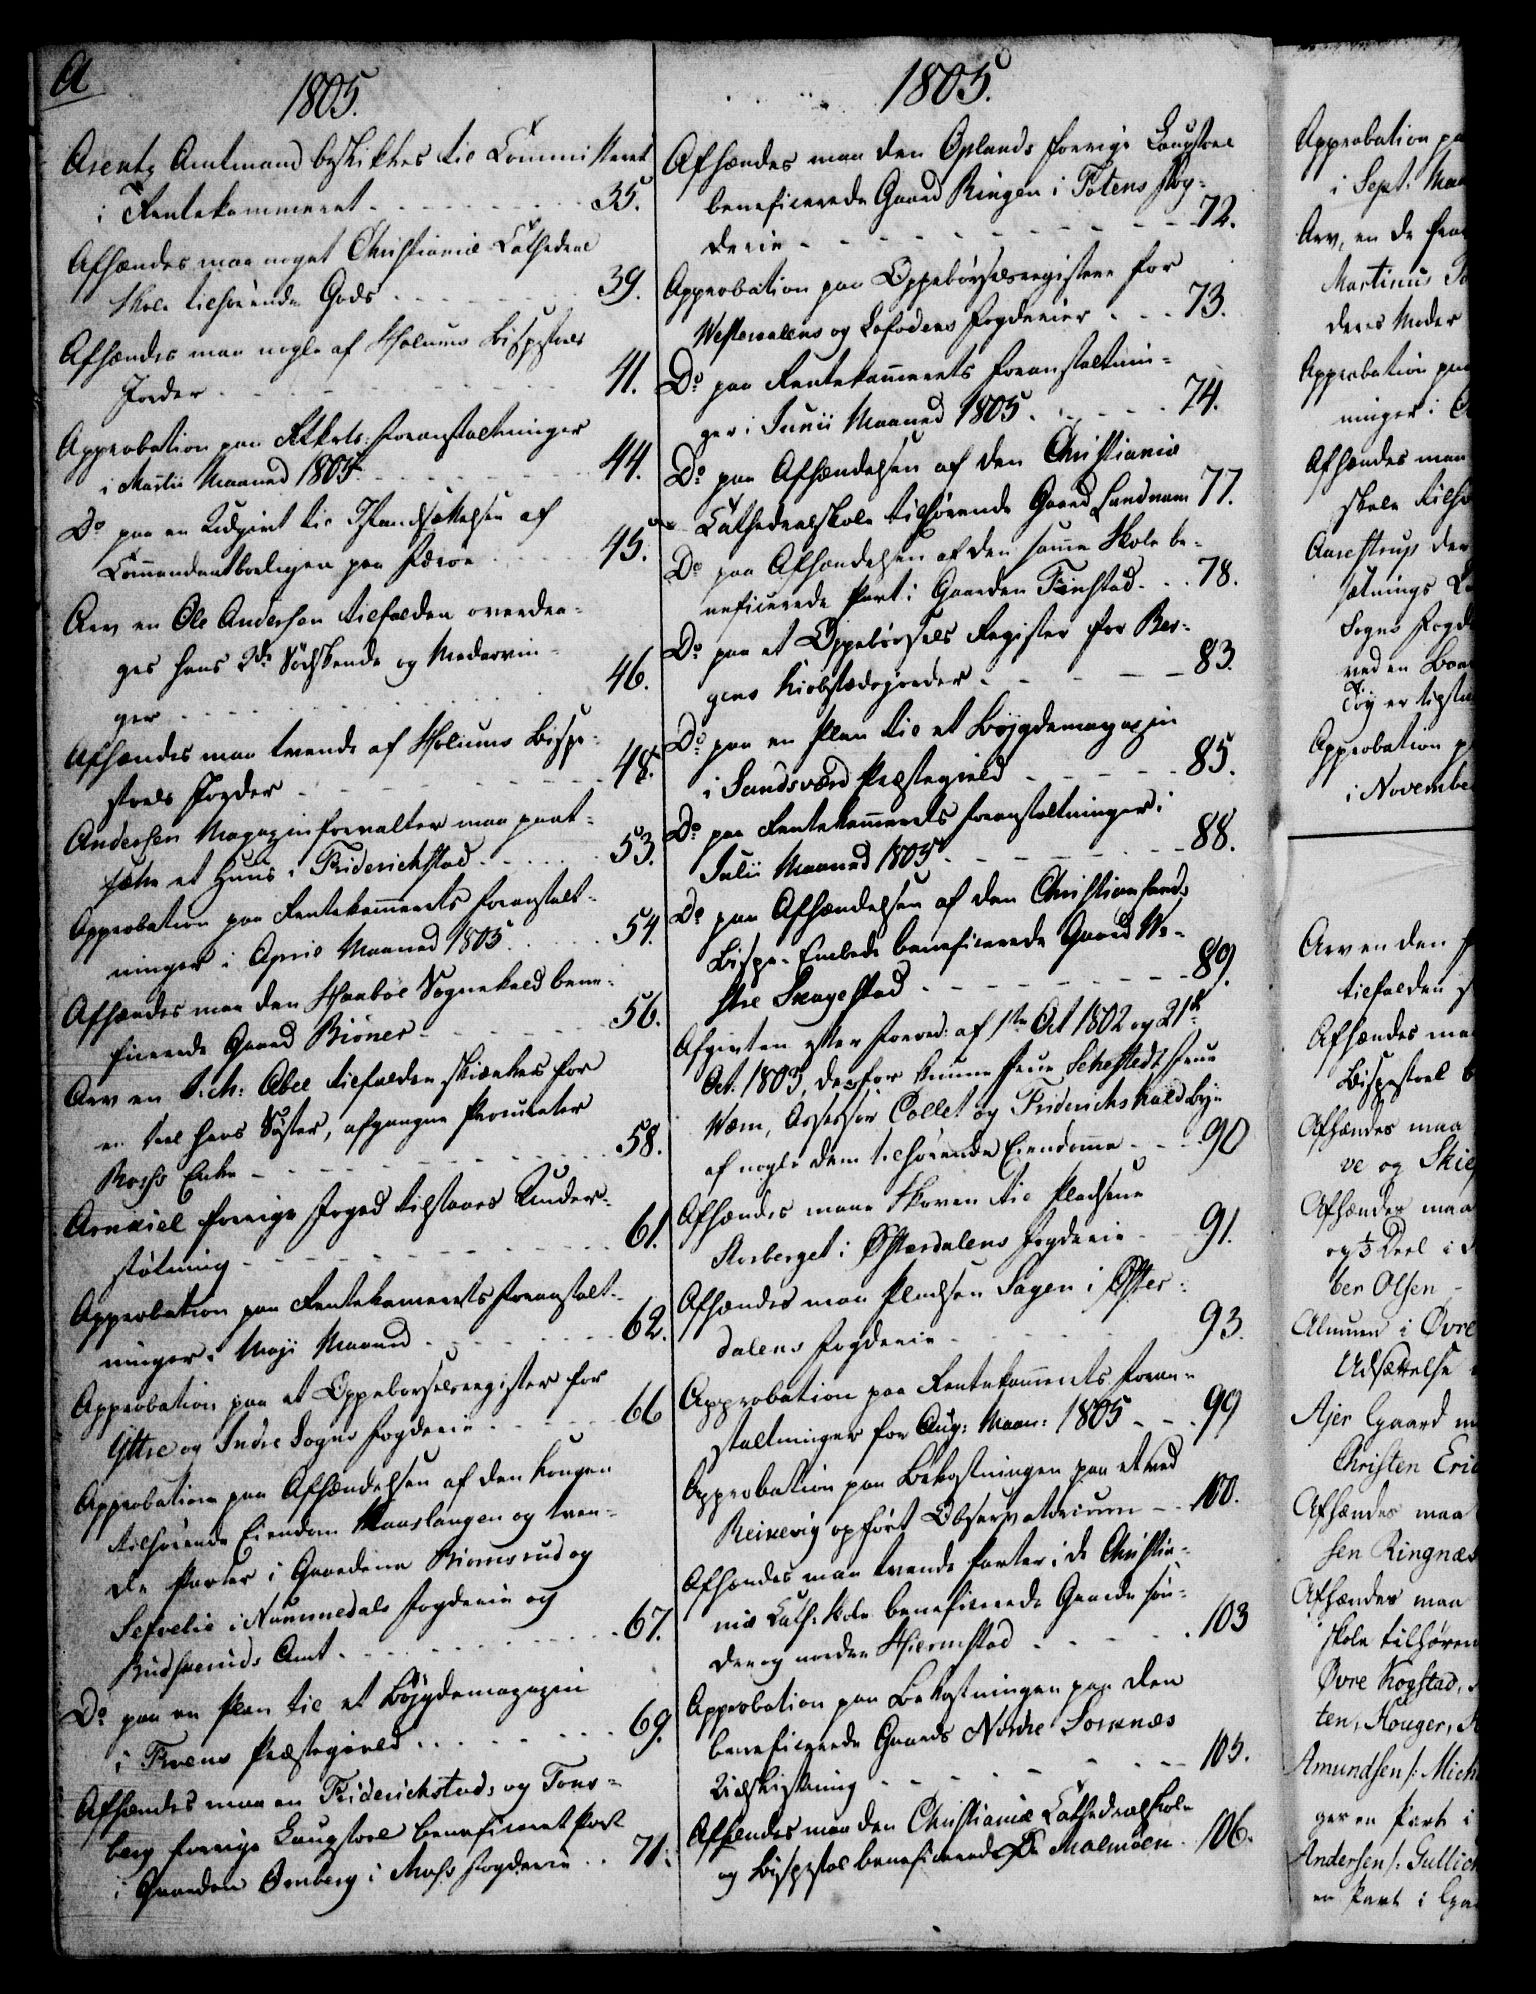 A
1805.
Arentz Amtmand beskikkes til Committeret
i Rentekammeret - - - 35.
Afhændes maa noget Christiania Cathedral
Skole tilhørende Gods - - - 39.
Afhændes maa nogle af Holums Bispestols
Jorder - - - 41.
Approbation paa Rtkrts: Foranstaltninger
i Martii Maaned 1805. - - - 44.
Do paa en Udgivt til Istandsættelsen af
Commendantboeligen paa Færøe - - - 45.
Arv en Ole Andersen tilfalden overdra-
ges hans 2de Sødskende og Moder
ger - - - 46.
Afhændes maa tvende af Holums Bispe-
stoels Jorder - - - 48.
Andersen Magazinforvalter maa pant-
sætte et Huus i Friderichstad - - - 53.
Approbation paa Rentekammerets Foranstalt-
ninger i April Maaned 1805. - - - 54.
Afhændes maa den Haabøl Sognekald bene-
ficerede Gaard Biøner - - - 56.
Arv en Abel tilfalden skienkes for
en deel hans Søster, afgangne Procurator
Enke - - - 58.
forrige Foged tilstaaes Under-
støtning - - - 61.
Approbation paa Rentekamerets Foranstalt-
ninger i Maji Maaned - - - 62.
Approbation paa et Oppeborselsregister for
Yttre og Indre Sogns Fogderie - - - 66
Approbation paa Afhændelsen af den Kongen
tilhørende Eiendom Maaslangen og tven-
de Parter i Gaardene Biornsrud og
Sefvelie i Nummedals Fogderie og
Budskeruds Amt - - - 67.
Do paa en Plan til et Bøygdemagazin
i Præstegield - - - 69.
Afhændes maa en Friderichstads og Tons-
berg forrige Laugstoel beneficeret Part
i Gaarden Omberg i Moss Fogderie - - 71.
1805.
Afhændes maa den Oplands forrige Laugstoel
beneficerede Gaard Ringen i Totens Fog-
derie - - - 72.
Approbation paa Oppebørselsregistere for
Westeraalens og Lofodens Fogderier - - - 73.
Do paa Rentekamerets Foranstaltnin-
ger i Junii Maaned 1805. - - - 74.
Do paa Afhændelsen af den Christiania
Cathedralskole tilhørende Gaard Landnam 77.
Do paa Afhændelsen af den samme Skole be-
neficerede Part i Gaarden Finstad - - 78.
Do paa et Oppebørsels Register for Ber-
gens Kiøbstædsjorder - - - 83.
Do paa en Plan til et Bøygdemagazin
i Sandsværd Præstegield - - - 85.
Do paa Rentekamerets Foranstaltninger i
Julii Maaned 1805 - - - 88.
Do paa Afhændelsen af den Christiansands
Bispe-Embede beneficerede Gaard We-
stre Skagestad - - - 89.
Afgivten efter Forord: af 1te Oct 1802 og 21de
Oct. 1803, derfor Kunne Frue Schestedt Frue
Wærn, Assessor Collet og Friderichshald Bye
af nogle dem tilhørende Eiendomme - - - 90
Afhændes maae Skoven til Pladsene
Storberget i Østerdalens Fogderie - - 91.
Afhændes maa Pladsen Sagen i Øster-
dalens Fogderie - - - 93.
Approbation paa Rentekamerets Foran-
staltninger for Aug: Maan: 1805 - - - 99
Approbation paa Bekostningen paa et ved
Reikevig opført Observatorium - - 100.
Afhændes maa tvende Parter i de Christia-
nia Cath: Skole beneficerede Gaarde Søn-
dre og nordre Hiermstad - - - 103
Approbation paa Bekostningen paa den
beneficerede Gaards Nordre Sorknæs
Udskiftning - - - 105.
Afhændes maa den Christianiæ Cathedralskole
og Bispestol beneficerede Øe Malmøen - 106.
Approbation pa
i Sept: Maa
Arv, en de
Martinus
deres Moder
Approbation paa
ninger i
Afhændes maa
skole tilhø
Aarestrup der
sætnings
Sogns Fogd
ved en
Tøy er tilsta
Approbation p
i Novembe
Arv en den
tilfalden
Afhændes ma
Bispestoel
Afhændes maa
ve og Skie
Afhændes maa
og 1/3 Deel i
ber Olsen
Almuen i Øvre
Udsættelse
Ajer Gaard
Christen Eric
Afhændes maa
sen Ringnæs
Afhændes maa
skole tilhøren
Øvre Kogstad,
ten, Kouger,
Amundsen /: Mich
ger en Part i
Andersen /: Gullic
en Part i Gaa